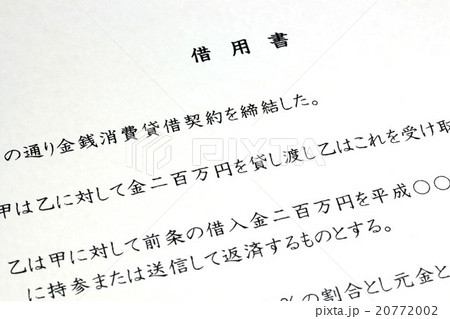 借用書
の通り金銭消費貸借契約を締結した。
甲は乙に対して金二百万円を貸し渡し乙はこれを受け取
乙は甲に対して前条の借入金二百万円を平成〇〇
に持参または送信して返済するものとする。
%の割合とし元金と
PIXTA
pixta.jp - 20772002